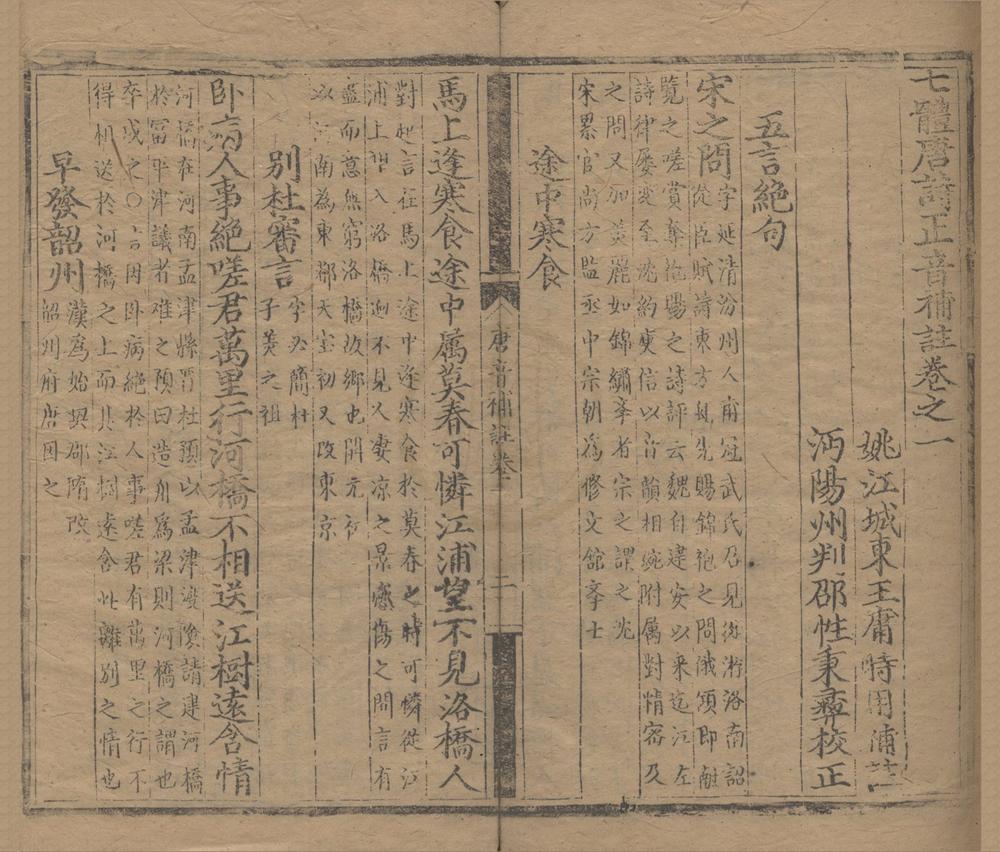 七體唐詩正音補註卷之一
姚江城東王庸時用補註
沔陽州判邵性秉彝校正
五言絶句
宋之問
字延清汾州人甫冠武氏召見後游洛南詔
從臣賦詩東方虬先賜錦袍之問俄頃即献
覽之嗟賞奪袍賜之詩評云魏自建安以来迄江左
詩律屡变至沈約庾信以音韻相婉附属對精密及
之問又加美麗如錦繡孝者宗之謂之沈
宋累官尚方監丞中宗朝為修文舘孝士
途中寒食
馬上逢寒食途中属莫春可憐江浦望不見洛橋人
對起言在馬上途中逢寒食於莫春之時可憐從江
浦上 入洛橋 不見人凄凉之景感傷之問言有
盡而意無窮洛橋故鄉也開元
南為東都天宝初又改東京
別杜審言
字必簡杜
子美之祖
卧病人事絶嗟君萬里行河橋不相送江樹遠含情
河橋在河南孟津縣晋杜預以孟津渡險請建河橋
於富平津議者难之预曰造舟為梁則河橋之謂也
卒成之○言因卧病絶於人事嗟君有萬里之行不
得相送於河橋之上而其江樹遠含此離别之情也
早發韶州
漢為始興郡隋改
韶州府唐因之
唐音補註卷一
二